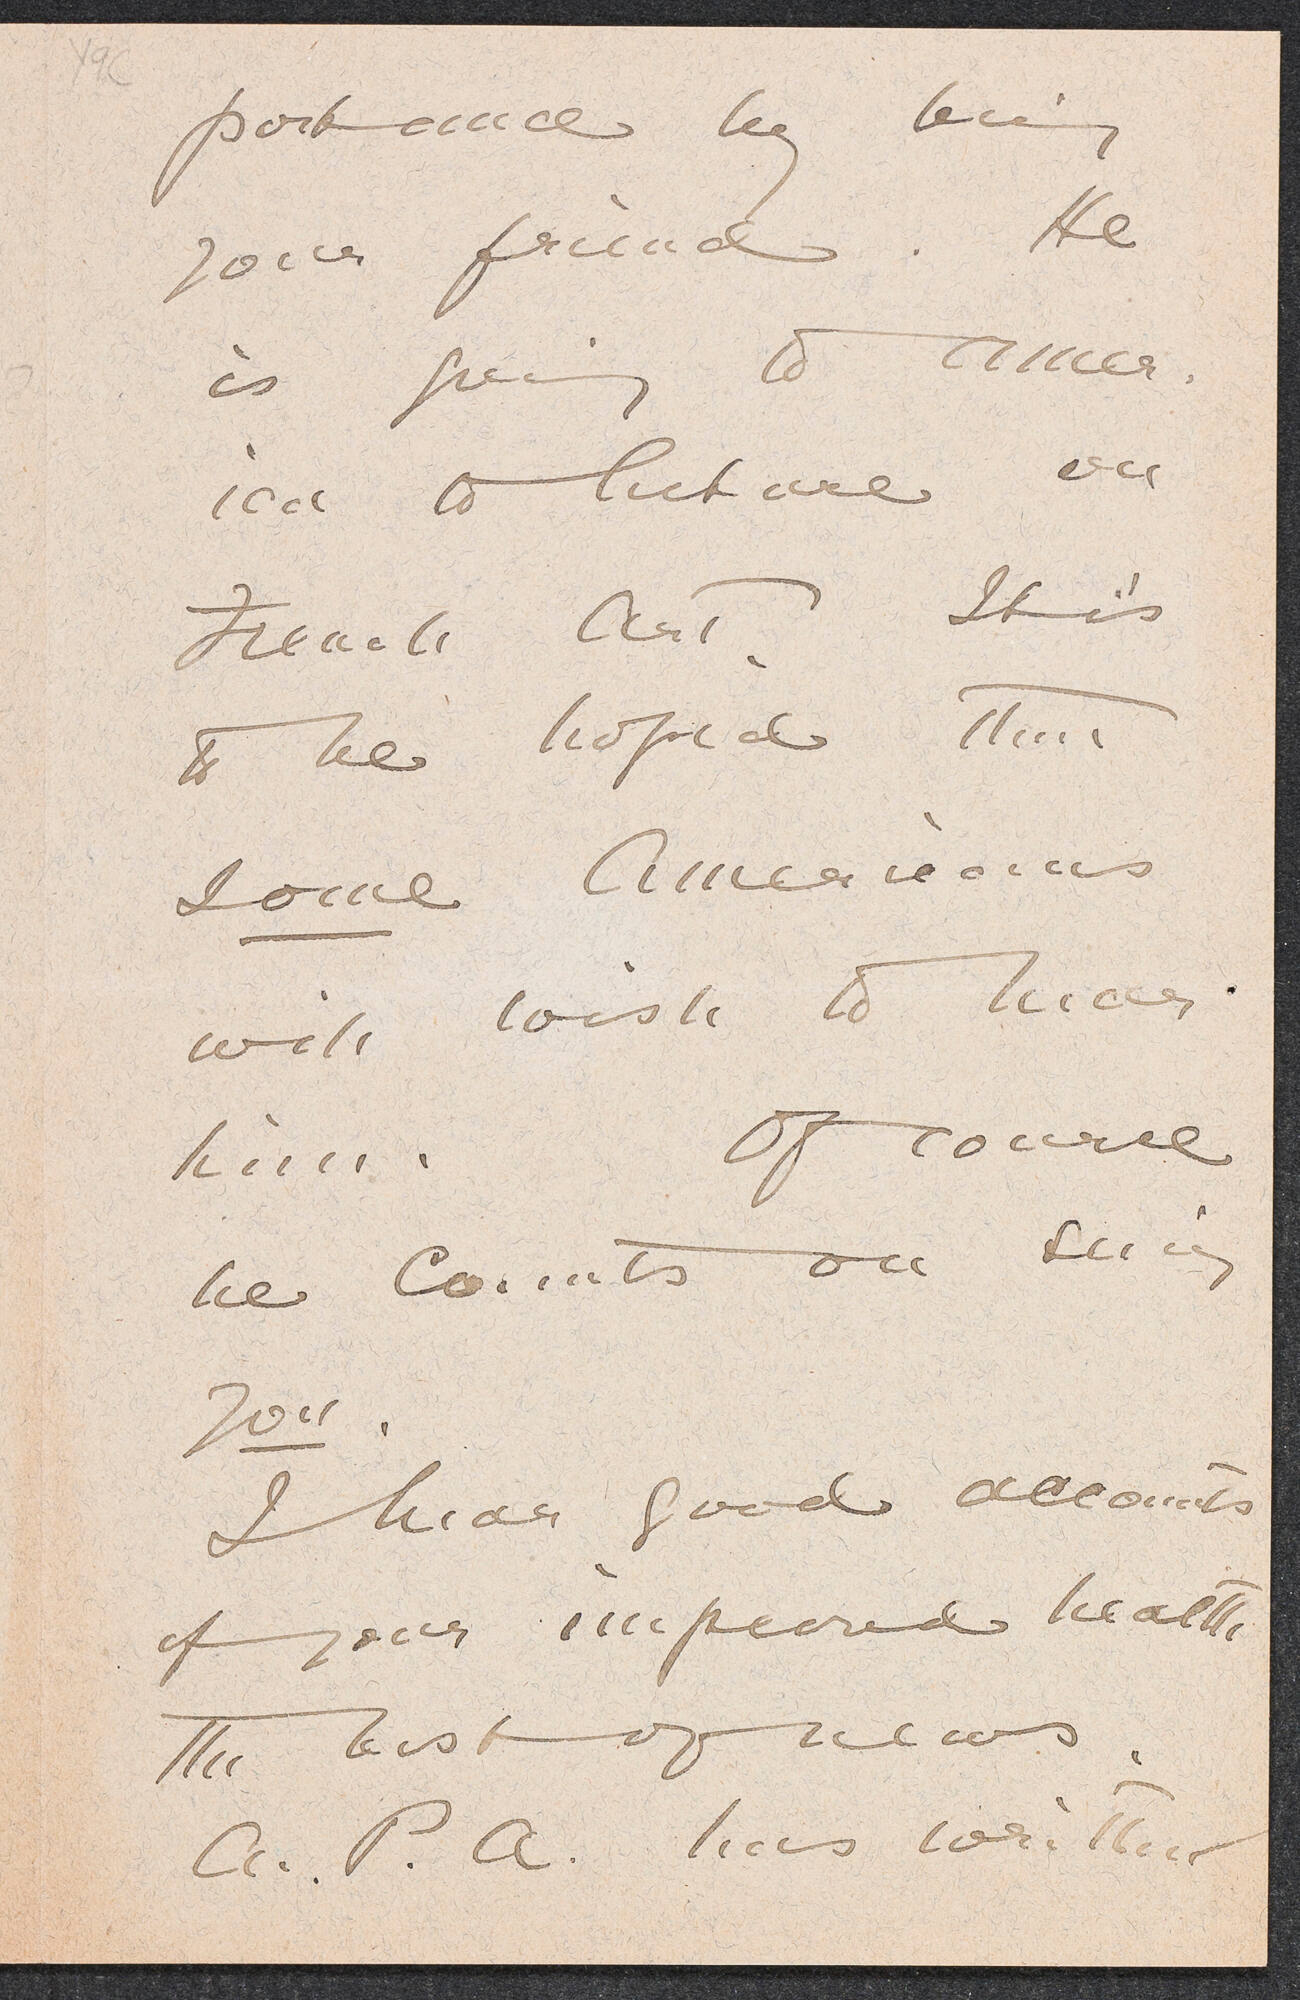 portance by being
your friend. He
is going to Amer-
ica to lecture on
French Art. It is
to be hoped that
some Americans
will wish to hear
him. Of course
he counts on seeing
you.
I hear good accounts
of your improved health
the best of news.
A. P. A. has written